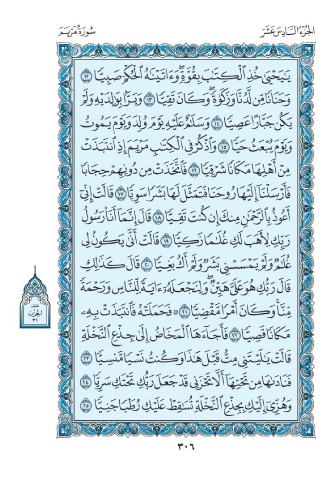 الجزء السادس عشر
سورة مريم
يَٰيَحۡيَىٰ خُذِ ٱلۡكِتَٰبَ بِقُوَّةٖۖ وَءَاتَيۡنَٰهُ ٱلۡحُكۡمَ صَبِيّٗا ١٢
وَحَنَانٗا مِّن لَّدُنَّا وَزَكَوٰةٗۖ وَكَانَ تَقِيّٗا ١٣ وَبَرَّۢا بِوَٰلِدَيۡهِ وَلَمۡ
يَكُن جَبَّارًا عَصِيّٗا ١٤ وَسَلَٰمٌ عَلَيۡهِ يَوۡمَ وُلِدَ وَيَوۡمَ يَمُوتُ
وَيَوۡمَ يُبۡعَثُ حَيّٗا ١٥ وَٱذۡكُرۡ فِي ٱلۡكِتَٰبِ مَرۡيَمَ إِذِ ٱنتَبَذَتۡ
مِنۡ أَهۡلِهَا مَكَانٗا شَرۡقِيّٗا ١٦ فَٱتَّخَذَتۡ مِن دُونِهِمۡ حِجَابٗا
فَأَرۡسَلۡنَآ إِلَيۡهَا رُوحَنَا فَتَمَثَّلَ لَهَا بَشَرٗا سَوِيّٗا ١٧ قَالَتۡ إِنِّيٓ
أَعُوذُ بِٱلرَّحۡمَٰنِ مِنكَ إِن كُنتَ تَقِيّٗا ١٨ قَالَ إِنَّمَآ أَنَا۠ رَسُولُ
رَبِّكِ لِأَهَبَ لَكِ غُلَٰمٗا زَكِيّٗا ١٩ قَالَتۡ أَنَّىٰ يَكُونُ لِي
غُلَٰمٞ وَلَمۡ يَمۡسَسۡنِي بَشَرٞ وَلَمۡ أَكُ بَغِيّٗا ٢٠ قَالَ كَذَٰلِكِ
قَالَ رَبُّكِ هُوَ عَلَيَّ هَيِّنٞۖ وَلِنَجۡعَلَهُۥٓ ءَايَةٗ لِّلنَّاسِ وَرَحۡمَةٗ
مِّنَّاۚ وَكَانَ أَمۡرٗا مَّقۡضِيّٗا ٢١ ۞ فَحَمَلَتۡهُ فَٱنتَبَذَتۡ بِهِۦ
مَكَانٗا قَصِيّٗا ٢٢ فَأَجَآءَهَا ٱلۡمَخَاضُ إِلَىٰ جِذۡعِ ٱلنَّخۡلَةِ
قَالَتۡ يَٰلَيۡتَنِي مِتُّ قَبۡلَ هَٰذَا وَكُنتُ نَسۡيٗا مَّنسِيّٗا ٢٣
فَنَادَىٰهَا مِن تَحۡتِهَآ أَلَّا تَحۡزَنِي قَدۡ جَعَلَ رَبُّكِ تَحۡتَكِ سَرِيّٗا ٢٤
وَهُزِّيٓ إِلَيۡكِ بِجِذۡعِ ٱلنَّخۡلَةِ تُسَٰقِطۡ عَلَيۡكِ رُطَبٗا جَنِيّٗا ٢٥
نصف
الحزب
٣١
٣٠٦